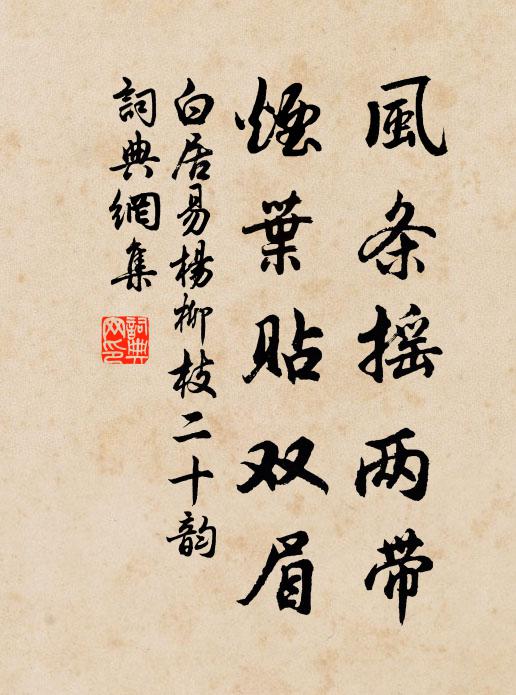 風条摇两带
煙葉貼双眉
白居易楊柳枝二十韵
詞典網集
詞典網印